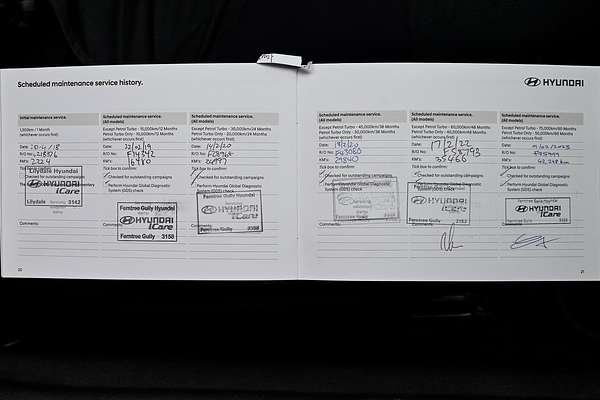 Scheduled maintenance service history.
Initial maintenance service.
1,500km / 1 Month
(whichever occurs first)
KM's: 224
Tick box to confirm:
Checked for outstanding campaigns
Lilydale Hyundai
HYUNDAI
Lilydale 3142
Comments:
Scheduled maintenance service.
(All models)
Except Petrol Turbo - 15,000km/12 Months
Petrol Turbo Only - 10,000km/12 Months
(whichever occurs first)
Date: 22/02/19
R/O No: F14342
KM's: 16980
Tick box to confirm:
Checked for outstanding campaigns
Perform Hyundai Global Diagnostic
System (GDS) check
Ferntree Gully Hyundai
HYUNDAI
iCare
Ferntree Gully 3156
Comments:
Scheduled maintenance service.
(All models)
Except Petrol Turbo - 30,000km/24 Months
Petrol Turbo Only - 20,000km/24 Months
(whichever occurs first)
Date: 14/2/20
Tick box to confirm:
Checked for outstanding campaigns
Perform Hyundai Global Diagnostic
System (GDS) check
Ferntree Gully Hyundai
HYUNDAI
iCare
Ferntree Gully 3156
Comments:
20
HYUNDAI
Scheduled maintenance service.
(All models)
Except Petrol Turbo - 45,000km/36 Months
Petrol Turbo Only - 30,000km/36 Months
(whichever occurs first)
R/O No: F43080
KM's: 29840
Tick box to confirm:
Checked for outstanding campaigns
Perform Hyundai Global Diagnostic
System (GDS) check
Comments:
Scheduled maintenance service.
(All models)
Except Petrol Turbo - 60,000km/48 Months
Petrol Turbo Only - 40,000km/48 Months
(whichever occurs first)
Date: 17/2/22
R/O No: F55793
KM's: 35466
Tick box to confirm:
Checked for outstanding campaigns
Perform Hyundai Global Diagnostic
System (GDS) check
HYUNDAI
iCare
Ferntree Gully 3156
Comments:
Scheduled maintenance service.
(All models)
Except Petrol Turbo - 75,000km/60 Months
Petrol Turbo Only - 50,000km/60 Months
(whichever occurs first)
Tick box to confirm:
Checked for outstanding campaigns
Perform Hyundai Global Diagnostic
System (GDS) check
Ferntree Gully Hyundai
HYUNDAI
iCare
Comments:
21